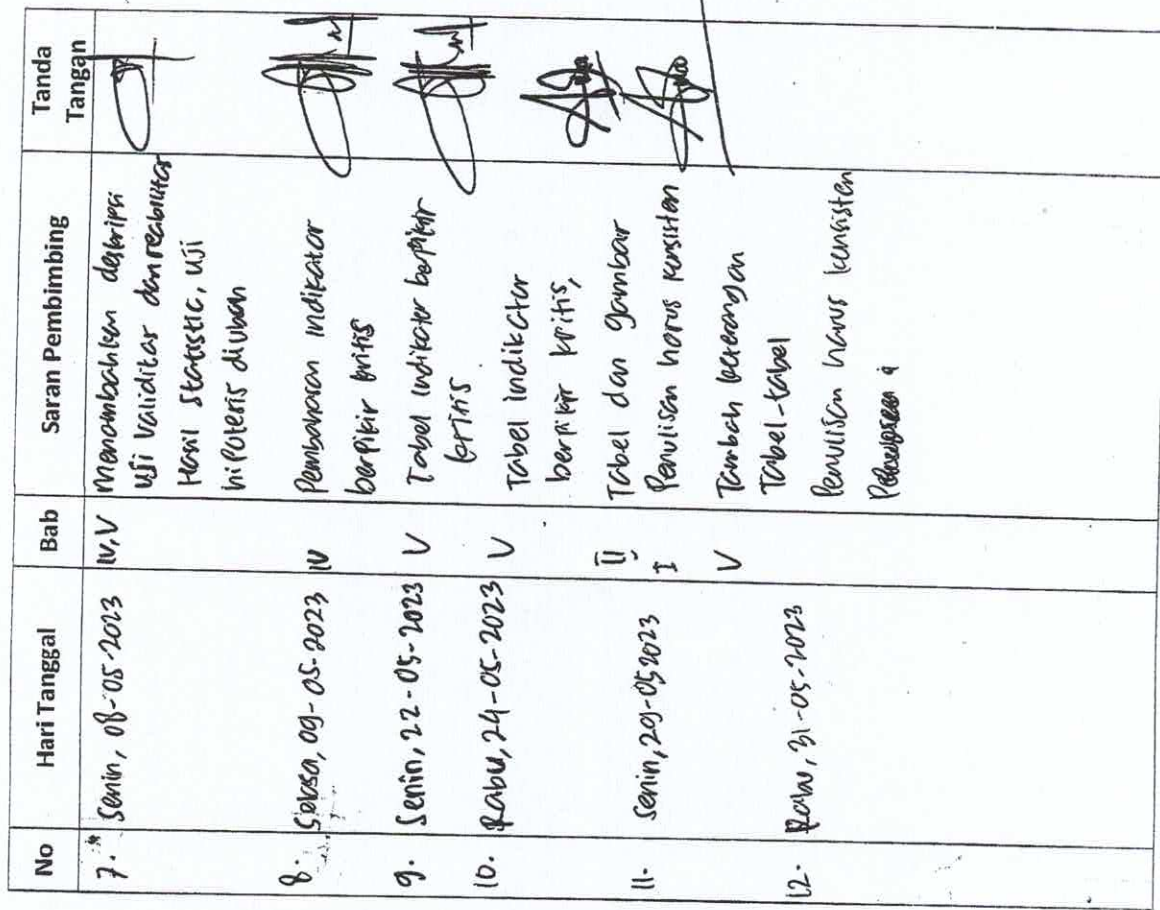 No Hari Tanggal Bab Saran Pembimbing Tanda Tangan
7. Senin, 08-05-2023 IV, V Menambahkan deskripsi
Uji Validitas dan reabilitas
Hasil Statistic, Uji
hipotesis diubah
8. Selasa, 09-05-2023 IV Pembahasan indikator
berpikir kritis
9. Senin, 22-05-2023 V Tabel indikator berpikir
kritis
10. Rabu, 24-05-2023 V Tabel indikator
berpikir kritis,
II, Tabel dan gambar
11. Senin, 29-05-2023 I Penulisan harus konsisten
V Tambah keterangan
Tabel-tabel
12. Rabu, 31-05-2023 Penulisan harus konsisten